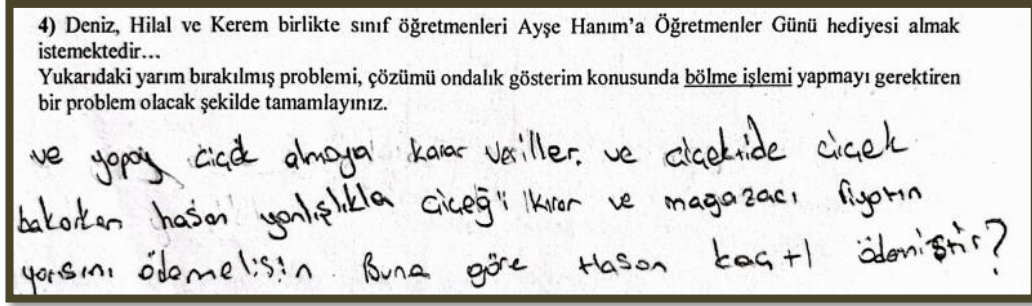 4) Deniz, Hilal ve Kerem birlikte sınıf öğretmenleri Ayşe Hanım'a Öğretmenler Günü hediyesi almak
istemektedir...
Yukarıdaki yarım bırakılmış problemi, çözümü ondalık gösterim konusunda bölme işlemi yapmayı gerektiren
bir problem olacak şekilde tamamlayınız.
ve yapay çiçek almaya karar veriller, ve çiçekride çicek
bakarken hasan yanlışlıkla çiceği kırar ve magazacı fiyatın
yarsını ödemelisin. Buna göre Hasan kaç tl ödemiştir?